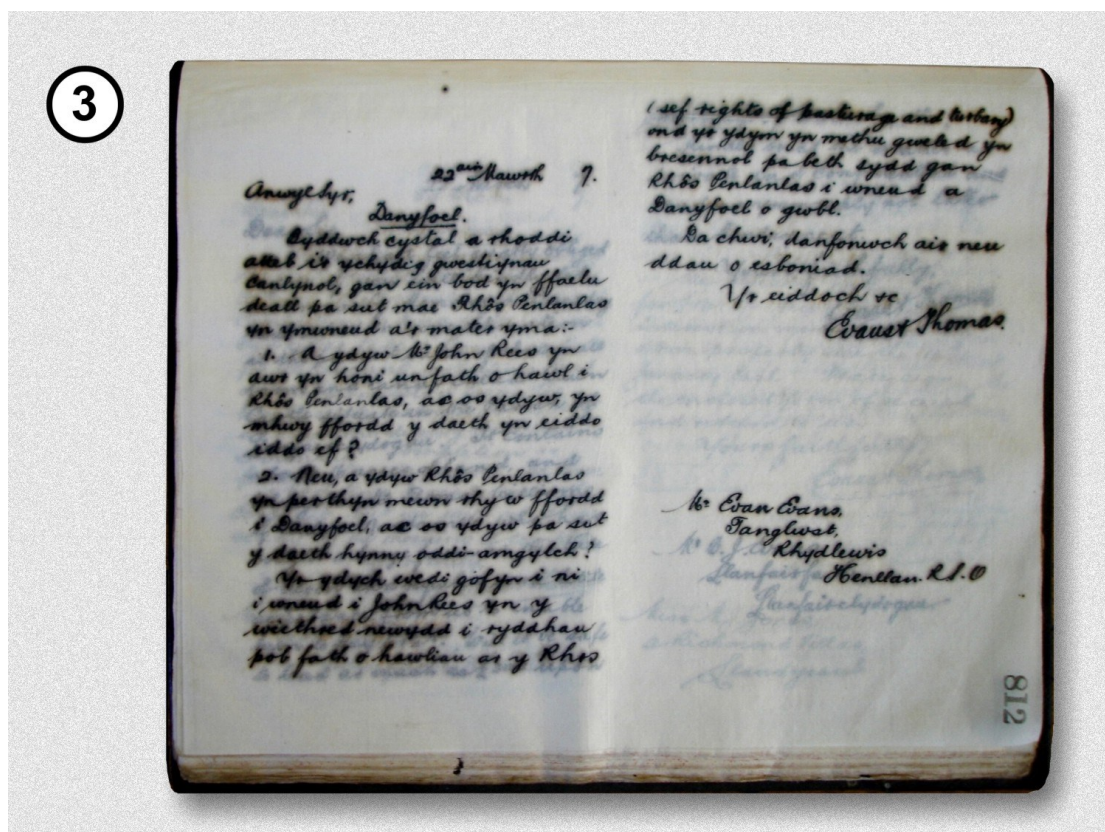 3
22ain Mawrth 7.
Anwyl Syr,
Danyfoel.
Byddwch cystal a rhoddi
atteb i'r ychydig gwestiynau
canlynol, gan ein bod yn ffaelu
deall pa sut mae Rhôs Penlanlas
yn ymwneud a'r mater yma:-
1. A ydyw Mr John Rees yn
awr yn honi unfath o hawl i
Rhôs Penlanlas, ac os ydyw, yn
mhwy ffordd y daeth yn eiddo
iddo ef?
2. Neu, a ydyw Rhôs Penlanlas
yn perthyn mewn rhyw ffordd
i Danyfoel, ac os ydyw pa sut
y daeth hynny oddi-amgylch?
Yr ydych wedi gofyn i ni
i wneud i John Rees yn y
weithred newydd i ryddhau
pob fath o hawliau ar y Rhos
(sef rights of pasturage and turbary)
ond yr ydym yn methu gweled yn
bresennol pa beth sydd gan
Rhôs Penlanlas i wneud a
Danyfoel o gwbl.
Da chwi, danfonwch air neu
ddau o esboniad.
Yr eiddoch &c
Evans & Thomas.
Mr Evan Evans,
Tanglwst,
Rhydlewis
Henllan. R.S.O
812